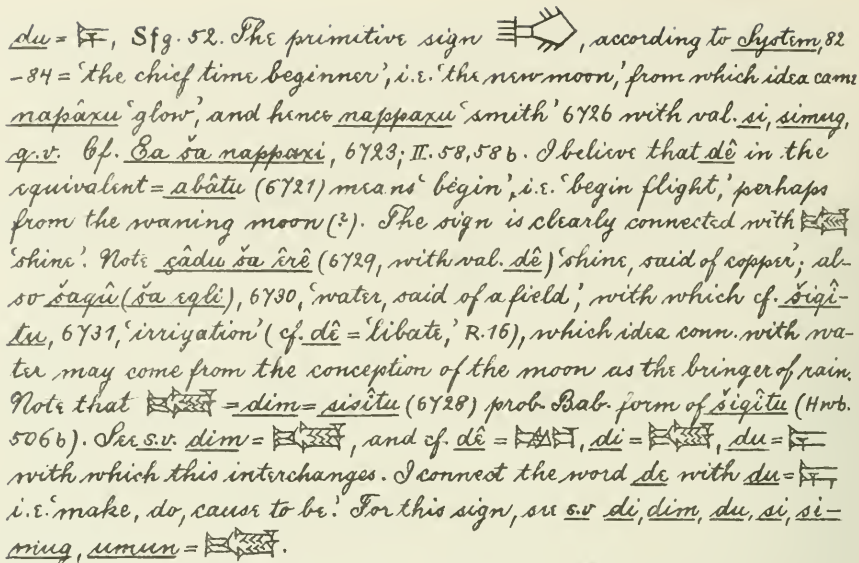 du = 𒁺, Sfg. 52. The primitive sign , according to System, 82
-84 = 'the chief time beginner', i.e. 'the new moon,' from which idea came
napâxu 'glow', and hence nappaxu 'smith' 6726 with val. si, simug,
q.v. Cf. Ea ša nappaxi, 6723; II. 58, 58 b. I believe that dê in the
equivalent = abâtu (6721) means 'begin', i.e. 'begin flight,' perhaps
from the waning moon (?). The sign is clearly connected with
'shine'. Note çâdu ša êrê (6729, with val. dê) 'shine, said of copper'; al-
so šaqû (ša eqli), 6730, 'water, said of a field', with which cf. šiqî-
tu, 6731, 'irriyation' (cf. dê = 'libate,' R. 16), which idea conn. with wa-
ter may come from the conception of the moon as the bringer of rain.
Note that = dim = sisîtu (6728) prob. Bab. form of šiqîtu (Hwb.
506 b). See s.v. dim = , and cf. dê = , di = , du = 𒁺
with which this interchanges. I connect the word de with du = 𒁺
i.e. 'make, do, cause to be.' For this sign, see s.v di, dim, du, si, si-
mug, umun = .